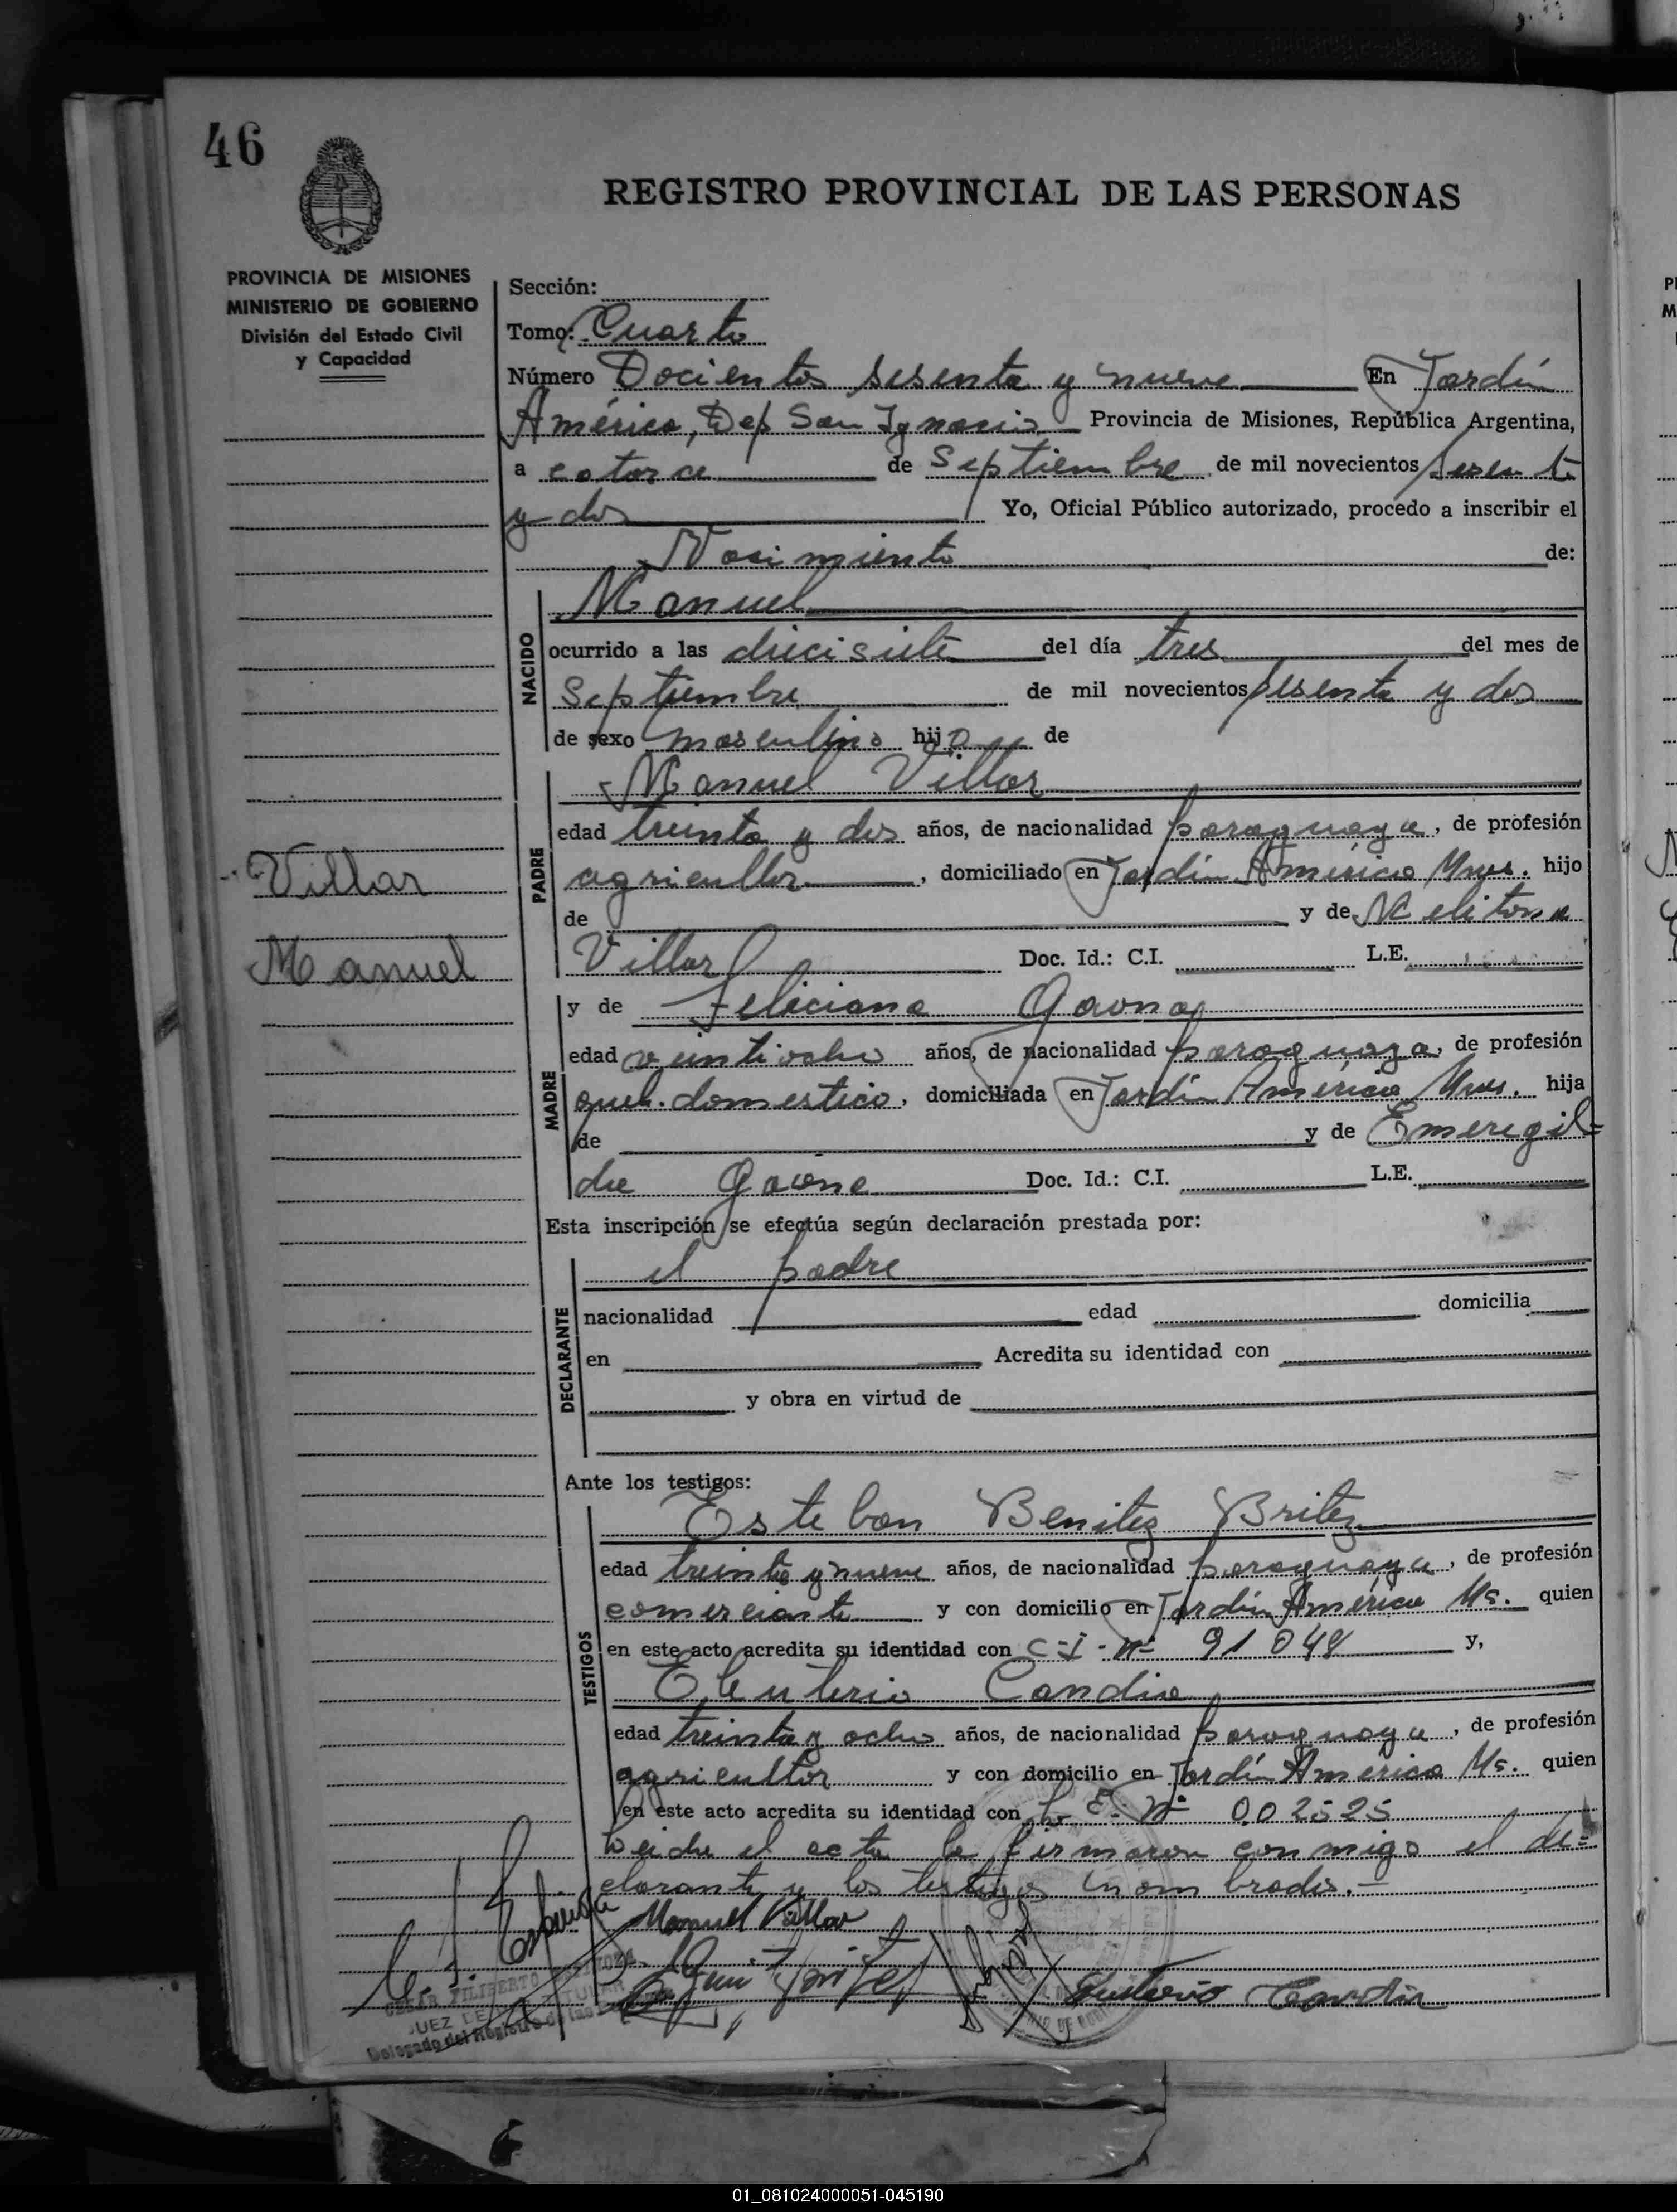 46
REGISTRO PROVINCIAL DE LAS PERSONAS
PROVINCIA DE MISIONES
MINISTERIO DE GOBIERNO
División del Estado Civil
y Capacidad
Sección:
Tomo: Cuarto
Número Docientos sesenta y nueve En Jardín
América, Dep San Ignacio Provincia de Misiones, República Argentina,
a catorce de Septiembre de mil novecientos sesenta
y dos Yo, Oficial Público autorizado, procedo a inscribir el
Nacimiento de:
NACIDO
Manuel
ocurrido a las diecisiete del día tres del mes de
Septiembre de mil novecientos sesenta y dos
de sexo masculino hijo de
PADRE
Manuel Villar
edad treinta y dos años, de nacionalidad paraguaya, de profesión
agricultor, domiciliado en Jardín América Mnes. hijo
de y de Melitona
Villar Doc. Id.: C.I. L.E.
Villar
Manuel
MADRE
y de Feliciana Gaona
edad veintiocho años, de nacionalidad paraguaya, de profesión
queh. domestico, domiciliada en Jardín América Mnes. hija
de y de Emeregil=
da Gaona Doc. Id.: C.I. L.E.
Esta inscripción se efectúa según declaración prestada por:
DECLARANTE
el padre
nacionalidad edad domicilia
en Acredita su identidad con
y obra en virtud de
Ante los testigos:
TESTIGOS
Esteban Benitez Britez
edad treinta y nueve años, de nacionalidad paraguaya, de profesión
comerciante y con domicilio en Jardín América Ms. quien
en este acto acredita su identidad con C-I-Nº 91048 y,
Eleuterio Candia
edad treinta y ocho años, de nacionalidad paraguaya, de profesión
agricultor y con domicilio en Jardín América Ms. quien
en este acto acredita su identidad con L. E. Nº 002525
Leida el acta la firmaron conmigo el de=
clarante y los testigos nombrados.-
Manuel Villar
Candia
JUEZ DE
Delegado del Registro de las
01_081024000051-045190